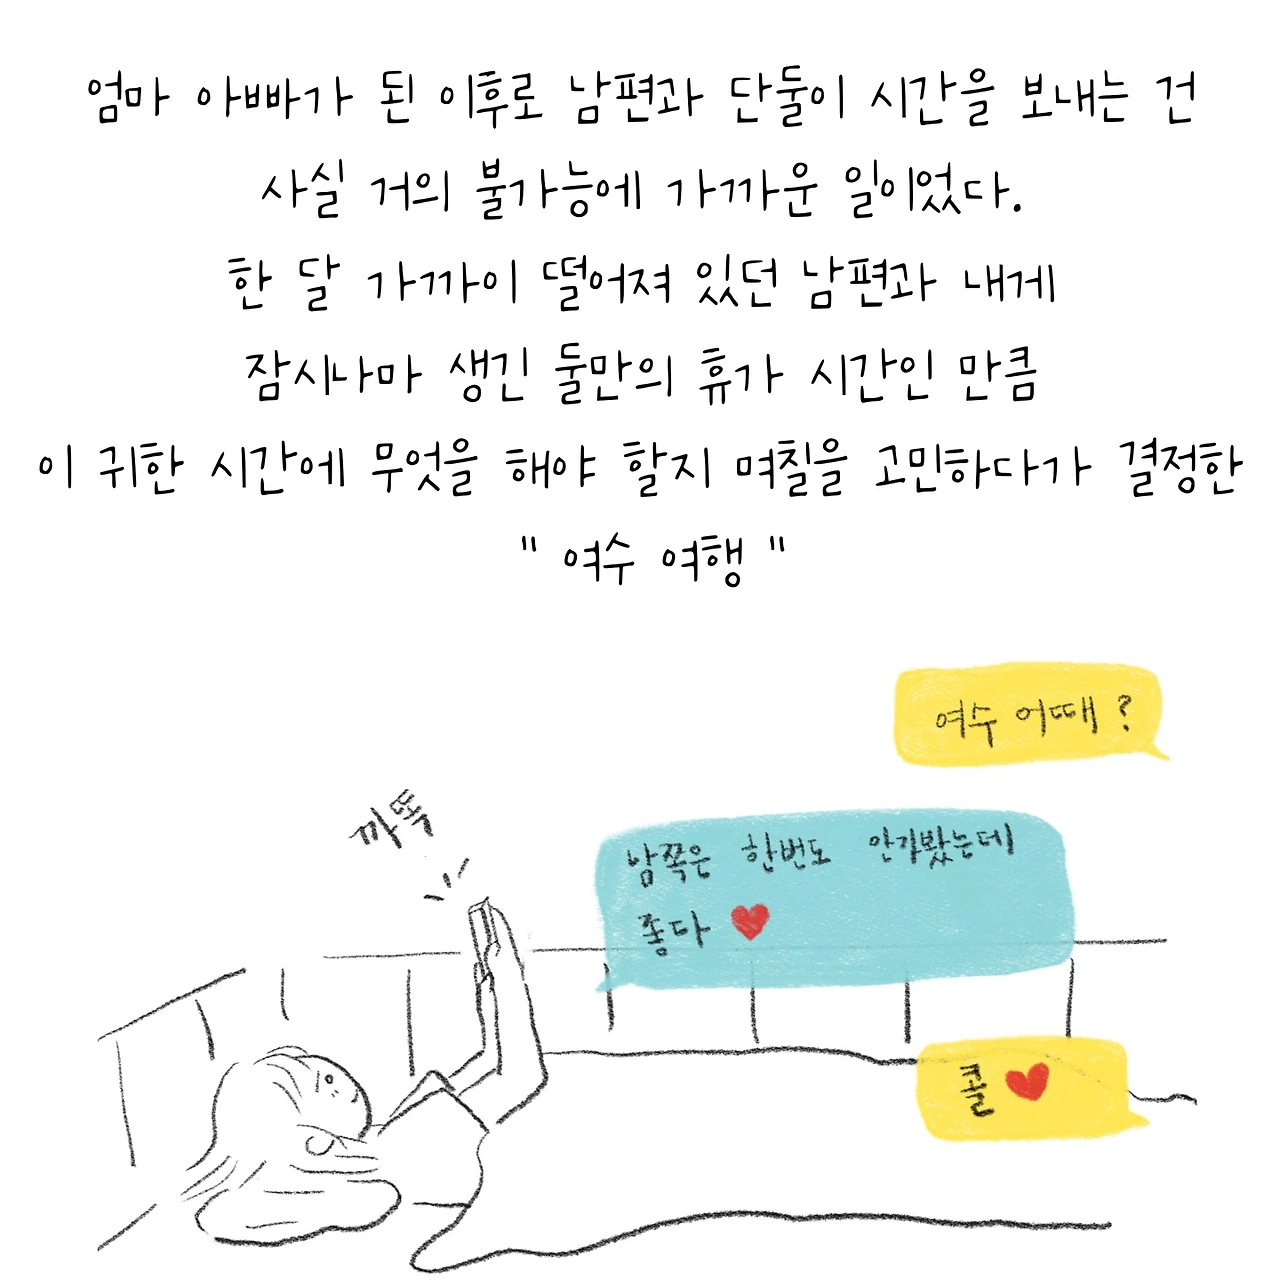 엄마 아빠가 된 이후로 남편과 단둘이 시간을 보내는 건
사실 거의 불가능에 가까운 일이었다.
한 달 가까이 떨어져 있던 남편과 내게
잠시나마 생긴 둘만의 휴가 시간인 만큼
이 귀한 시간에 무엇을 해야 할지 며칠을 고민하다가 결정한
" 여수 여행 "
여수 어때 ?
까똑
남쪽은 한번도 안가봤는데
좋다 ❤️
콜 ❤️